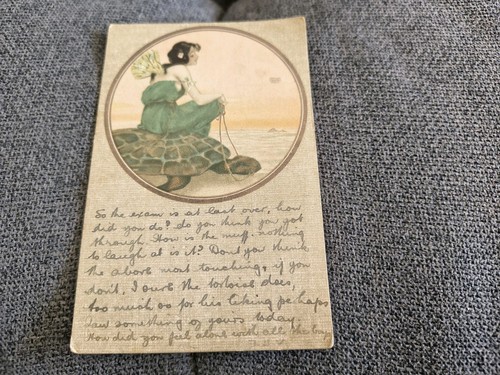 So the exam is at last over, how
did you do? Do you think you got
through. How is the muff. nothing
to laugh at is it? Dont you think
the above most touching, if you
don't, I am sure the tortoise does,
too much so for his liking perhaps
saw something of yours today.
How did you feel alone with all the boys